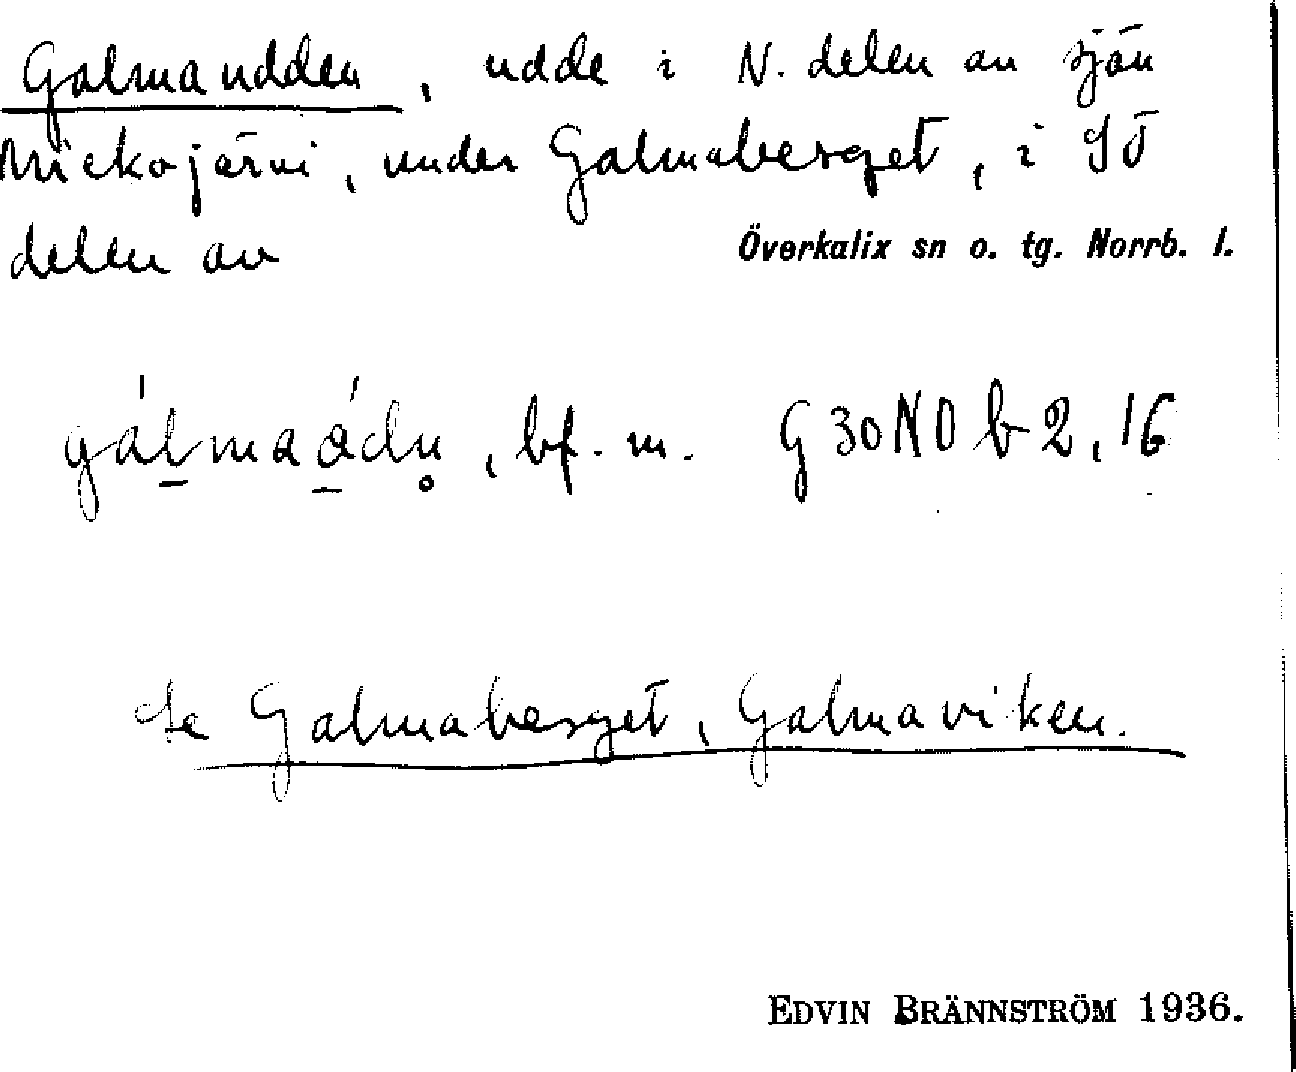 Galmaudden, udde i N. delen av sjön
Miekojärvi, under Galmaberget, i SÖ
delen av Överkalix sn o. tg. Norrb. l.
bf. m. G30NO b 2, 16
Se Galmaberget, Galmaviken.
EDVIN BRÄNNSTRÖM 1936.